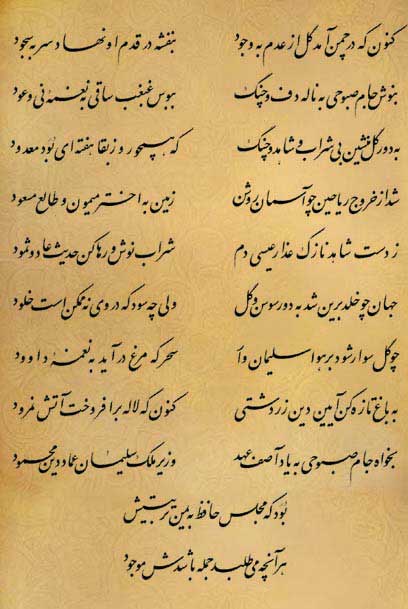 کنون که در چمن آمد گل از عدم به وجود بنفشه در قدم او نهاد سر به سجود
بنوش جام صبوحی به ناله دف و چنگ ببوس غبغب ساقی به نغمه نی و عود
به دور گل منشین بی شراب و شاهد و چنگ که همچو روز بقا هفته ای بود معدود
شد از خروج ریاحین چو آسمان روشن زمین به اختر میمون و طالع مسعود
ز دست شاهد نازک عذار عیسی دم شراب نوش و رها کن حدیث عاد و ثمود
جهان چو خلد برین شد به دور سوسن و گل ولی چه سود که در وی نه ممکن است خلود
چو گل سوار شود بر هوا سلیمان وار سحر که مرغ درآید به نغمه داوود
به باغ تازه کن آیین دین زردشتی کنون که لاله برافروخت آتش نمرود
بخواه جام صبوحی به یاد آصف عهد وزیر ملک سلیمان عماد دین محمود
بود که مجلس حافظ به یمن تربیتش
هر آنچه می طلبد جمله باشدش موجود